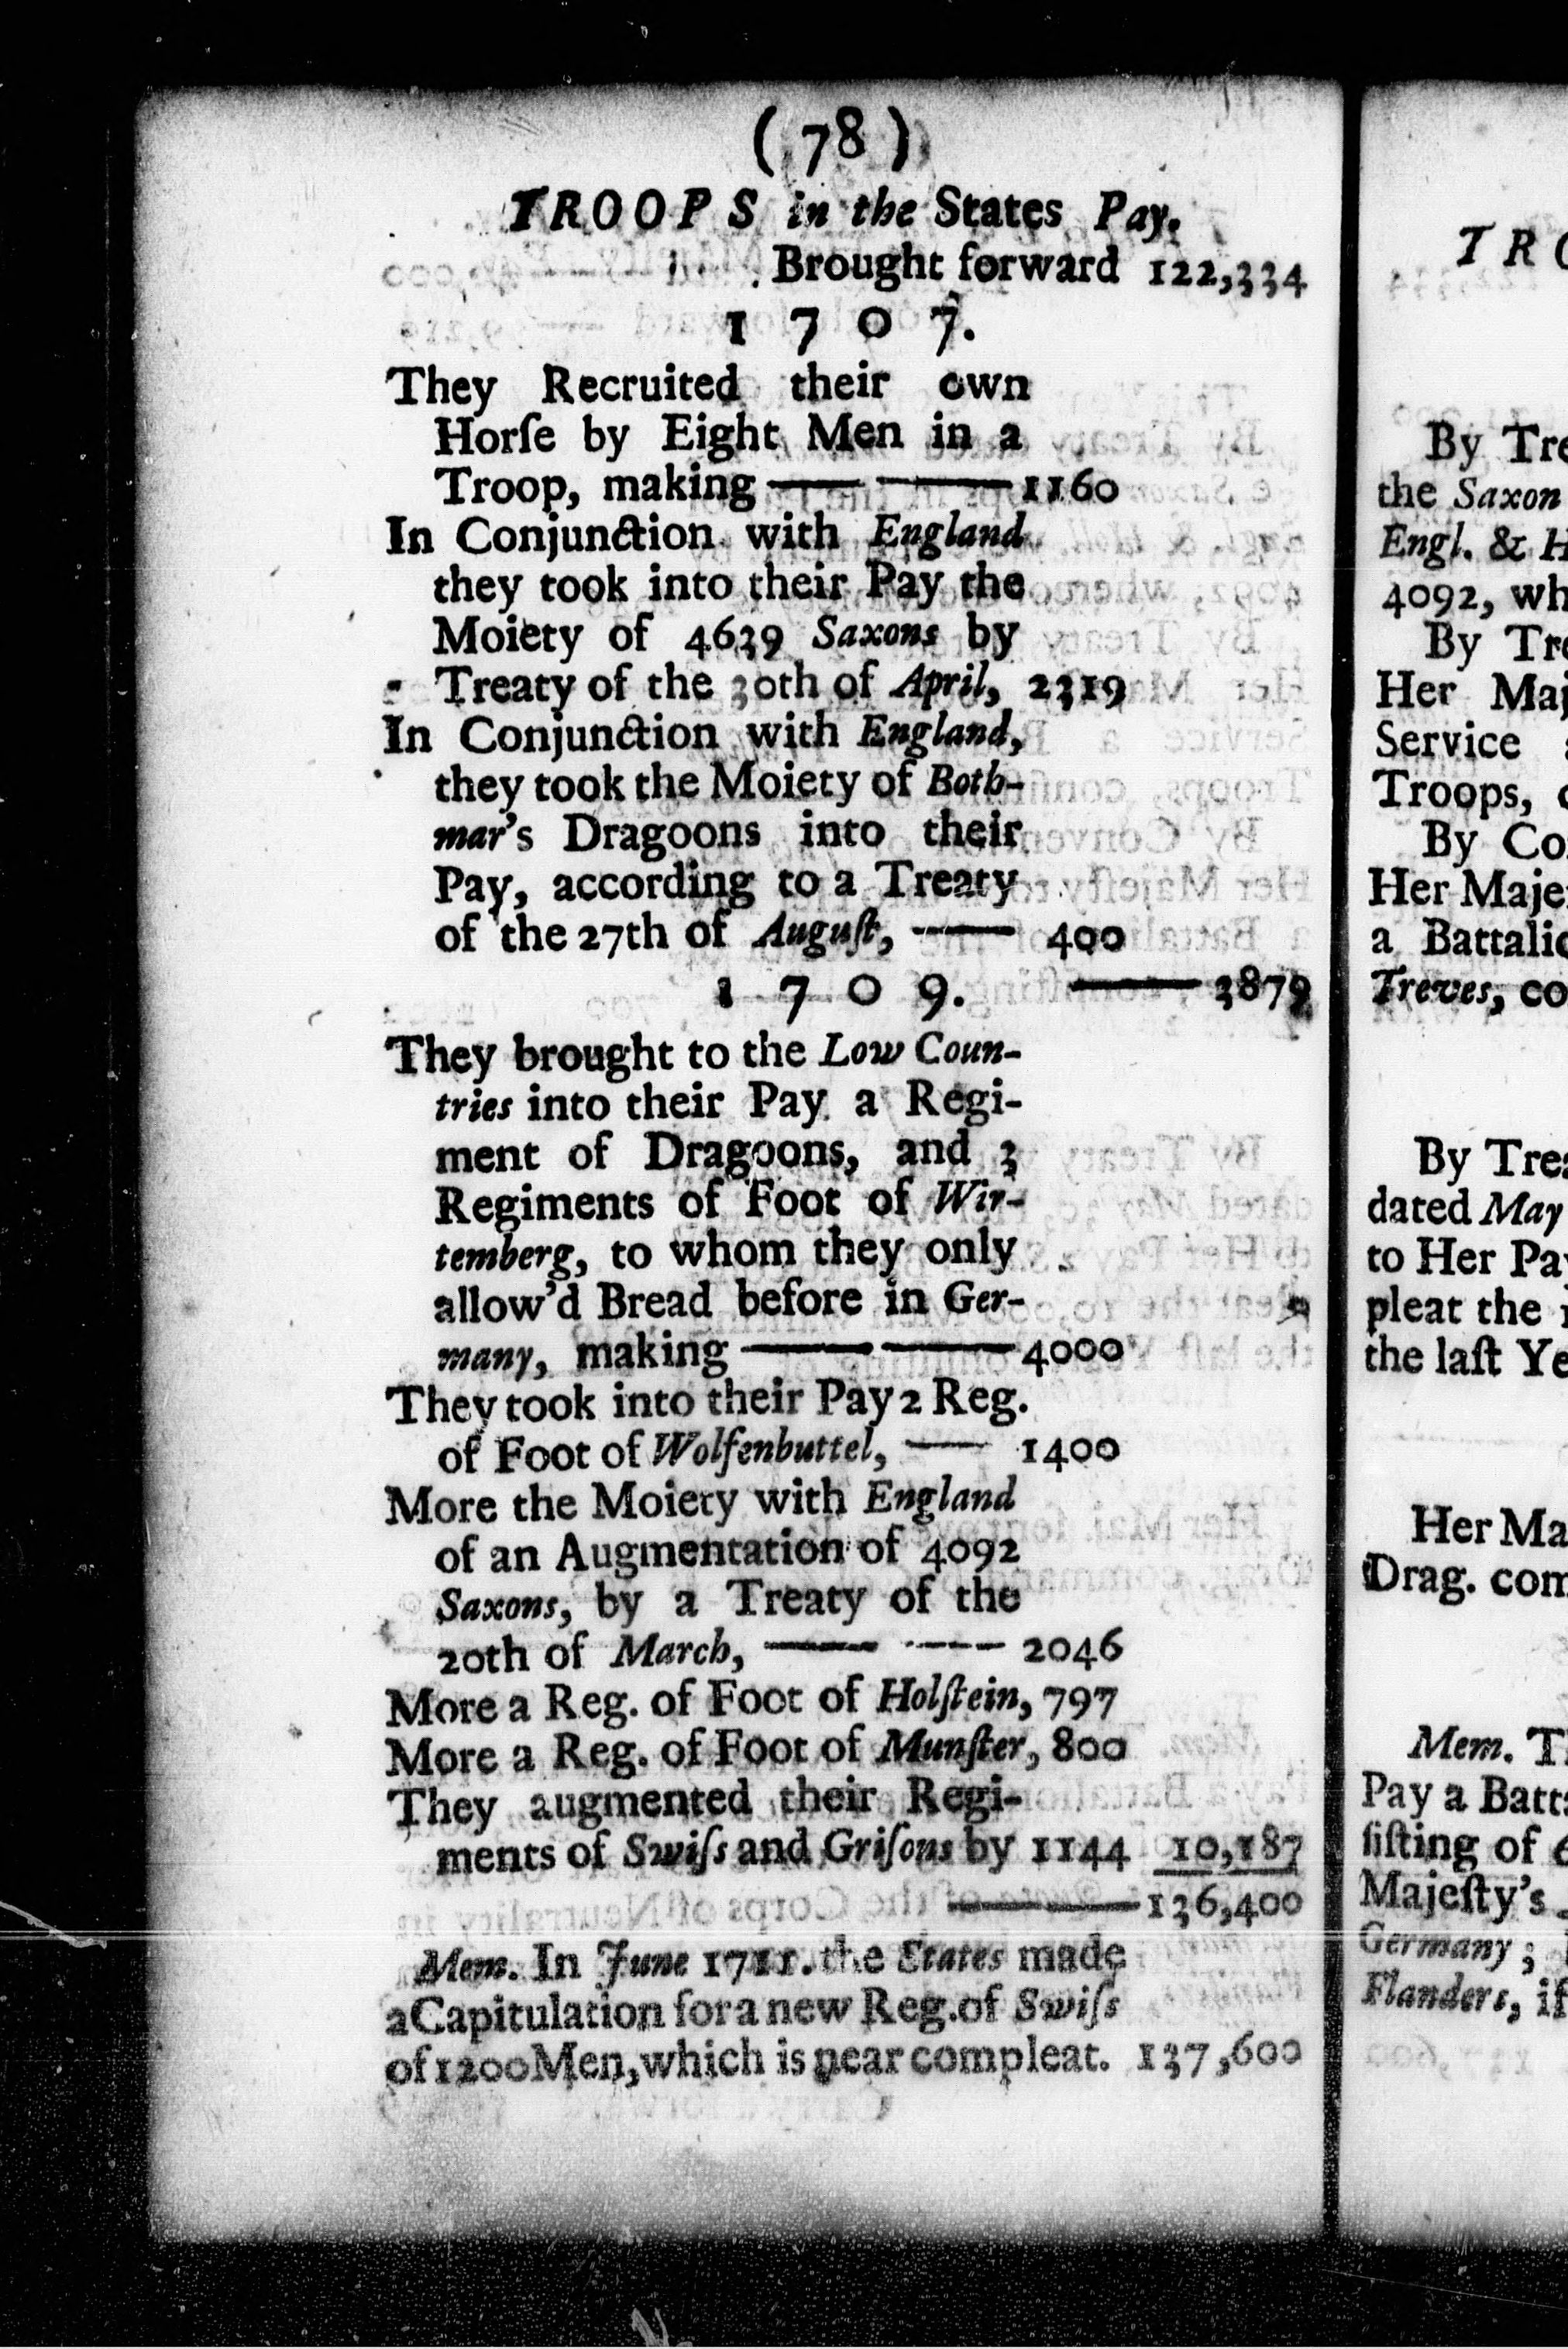 ( 78 )
TROOPS in the States Pay.
Brought forward 122,334
1 7 0 7.
They Recruited their own
Horſe by Eight Men in a
Troop, making —— —— 1160
In Conjunction with England
they took into their Pay the
Moiety of 4639 Saxons by
Treaty of the 30th of April, 2319
In Conjunction with England,
they took the Moiety of Both-
mar's Dragoons into their
Pay, according to a Treaty
of the 27th of Auguſt, —— 400
1 7 0 9. —— 3879
They brought to the Low Coun-
tries into their Pay a Regi-
ment of Dragoons, and 3
Regiments of Foot of Wir-
temberg, to whom they only
allow'd Bread before in Ger-
many, making —— —— 4000
They took into their Pay 2 Reg.
of Foot of Wolfenbuttel, —— 1400
More the Moiety with England
of an Augmentation of 4092
Saxons, by a Treaty of the
20th of March, —— —— 2046
More a Reg. of Foot of Holſtein, 797
More a Reg. of Foot of Munſter, 800
They augmented their Regi-
ments of Swiſs and Griſons by 1144 10,187
—— 136,400
Mem. In June 1711. the States made
a Capitulation for a new Reg. of Swiſs
of 1200 Men, which is near compleat. 137,600
By Tre
the Saxon
Engl. & H
4092, wh
By Tre
Her Maj
Service
Troops,
By Co
Her Maje
a Battalio
Treves, co
By Trea
dated May
to Her Pay
pleat the
the laſt Ye
Her Ma
Drag. com
Mem. T
Pay a Batt
ſiſting of
Majeſty's
Germany;
Flanders, if